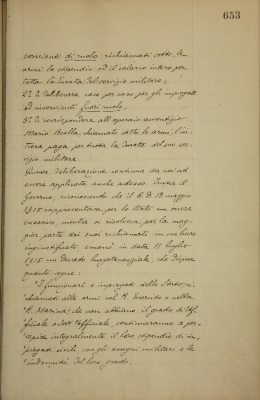 653
servienti di ruolo richiamati sotto le
armi lo stipendio od il salario intero per
tutta la durata del servizio militare;
2° di deliberare caso per caso per gli impiegati
ed inservienti fuori ruolo;
3° di corrispondere all'operaio avventizio
Mario Biella, chiamato sotto le armi, l'in-
tiera paga per tutta la durata del suo ser-
vizio militare.
Questa deliberazione continua da noi ad
essere applicata anche adesso. Invece il
Governo, riconoscendo che il R. D. 13 maggio
1915 rappresentava per lo Stato un onere
eccessivo, mentre si risolveva per la mag-
gior parte dei suoi richiamati in un lucro
ingiustificato, emanò in data 11 luglio
1915 un Decreto Luogotenenziale, che dispone
quanto segue:
"I funzionari e impiegati dello Stato, ri-
"chiamati alle armi nel R. Esercito o nella
"R. Marina, che non abbiano il grado di Uf-
"ficiale o Sott'Ufficiale, continueranno a per-
"cepire integralmente il loro stipendio di im-
"piegati civili con gli assegni militari e le
"indennità del loro grado.